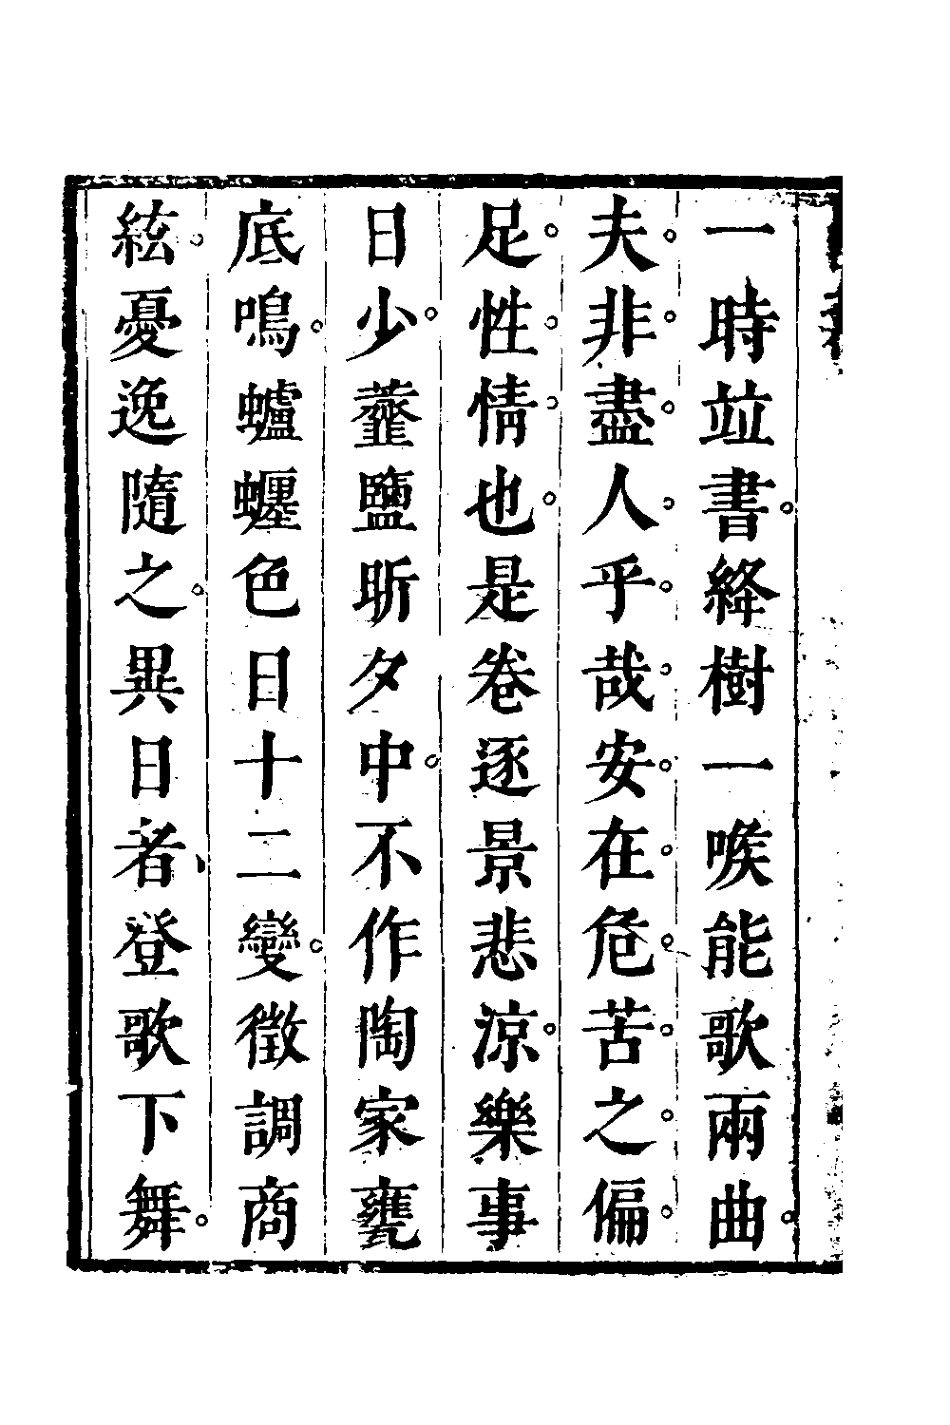 一時竝書。絳樹一喉能歌兩曲。
夫。非。盡。人。乎。哉。安。在。危。苦。之。偏。
足。性。情。也。是卷逐景悲涼。樂事
日少。虀鹽昕夕中。不作陶家甕
底鳴。蠦蜰色日十二變。徵調商
絃。憂逸隨之。異日者、登歌下舞。